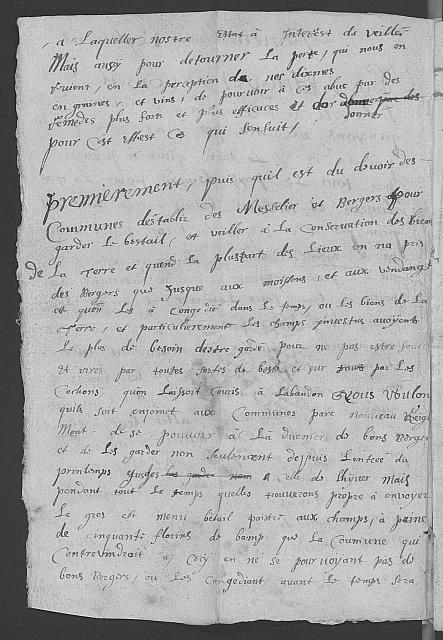 a Laqueller nostre Estat à Interest de veiller
Mais aussÿ pour detourner la perte, qui nous en
revient, en la perception de nos dixmes
en graines, et vins, de pourvoir à ces abus par des
remedes plus forts et plus efficaces et
donner
pour cest effest ce qui sensuit /
Premierement, puis quil est du devoir des
Communes destablir des Messelier et Bergers pour
garder le bestail, et veiller à la Conservation des biens
de La terre et quand la pluspart des Lieux on na pris
des Bergers que jusque aux moissons, et aux vendanges
et quon les à Congedié dans le temps, ou les biens de La
Terre, et particulierement les champs
Le plus de besoin destre gardé pour ne pas estre
et vires par toutes sortes de beste et sur tous par Les
Cochons quon Laissoit Couris à Labandon Nous Voulons
quils soit enjoinct aux Communes pare nouveau Reigle
Ment de se pouvoir à Là duenier de bons Berger
et de Les garder non seulement depuis Lentrée du
printemps jusques a Celle de lhÿver Mais
pendant tout Le temps quelles trouverons propre à envoyer
Le gros est menu betail paistre aux champs, à peine
de cinquante florins de bamp que La Coumune qui
Contreviendroit à Cecy en ne se pourvoyant pas de
bons Bergers, ou Les Congediant avant Le temps sera